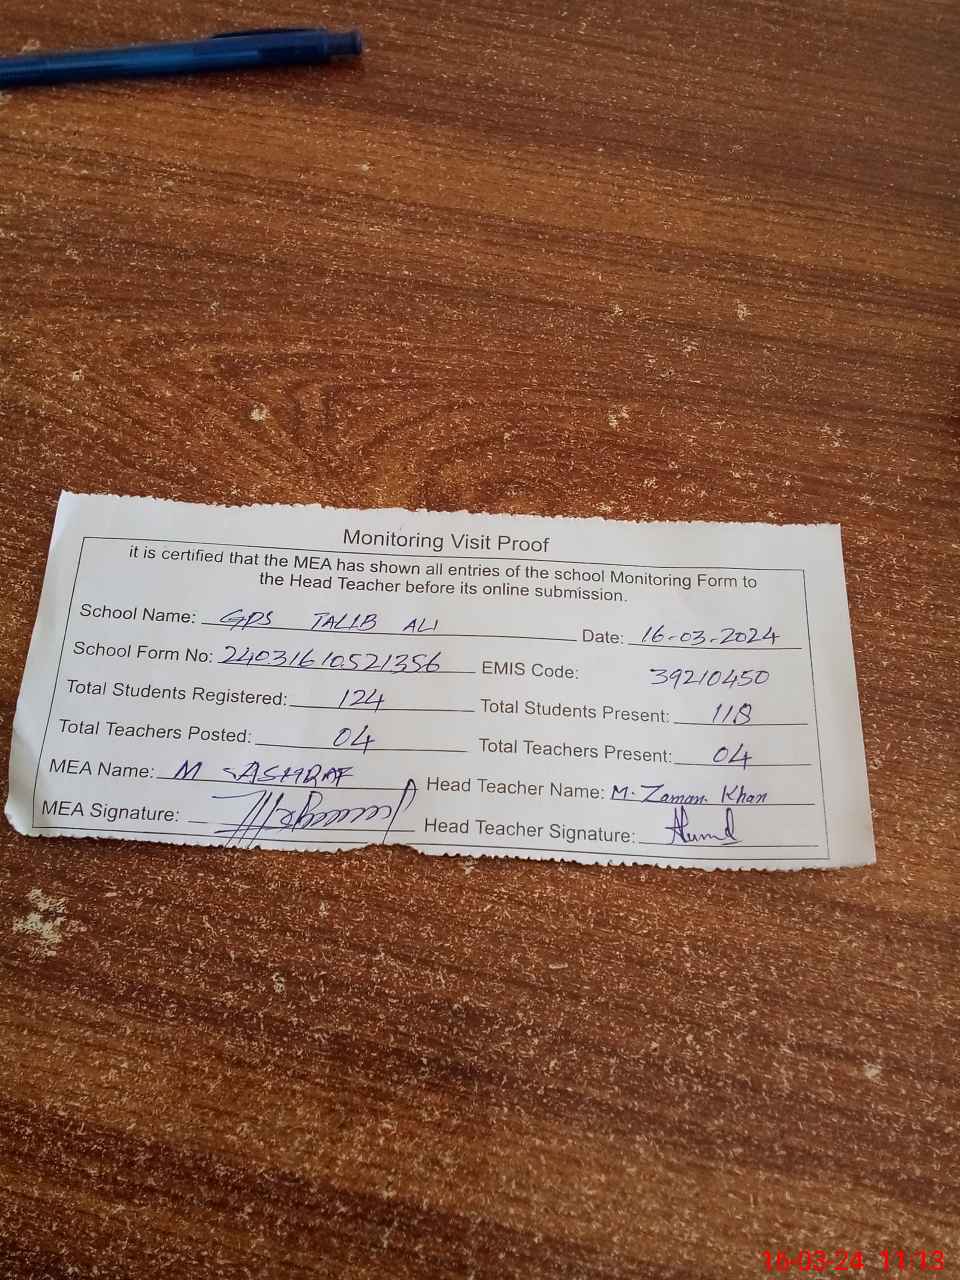 Monitoring Visit Proof
it is certified that the MEA has shown all entries of the school Monitoring Form to
the Head Teacher before its online submission.
School Name: GPS TALIB ALI Date: 16-03-2024
School Form No: 24031610521356 EMIS Code: 39210450
Total Students Registered: 124 Total Students Present: 118
Total Teachers Posted: 04 Total Teachers Present: 04
MEA Name: M ASHRAF Head Teacher Name: M. Zaman Khan
MEA Signature: Head Teacher Signature:
16-03-24 11:13